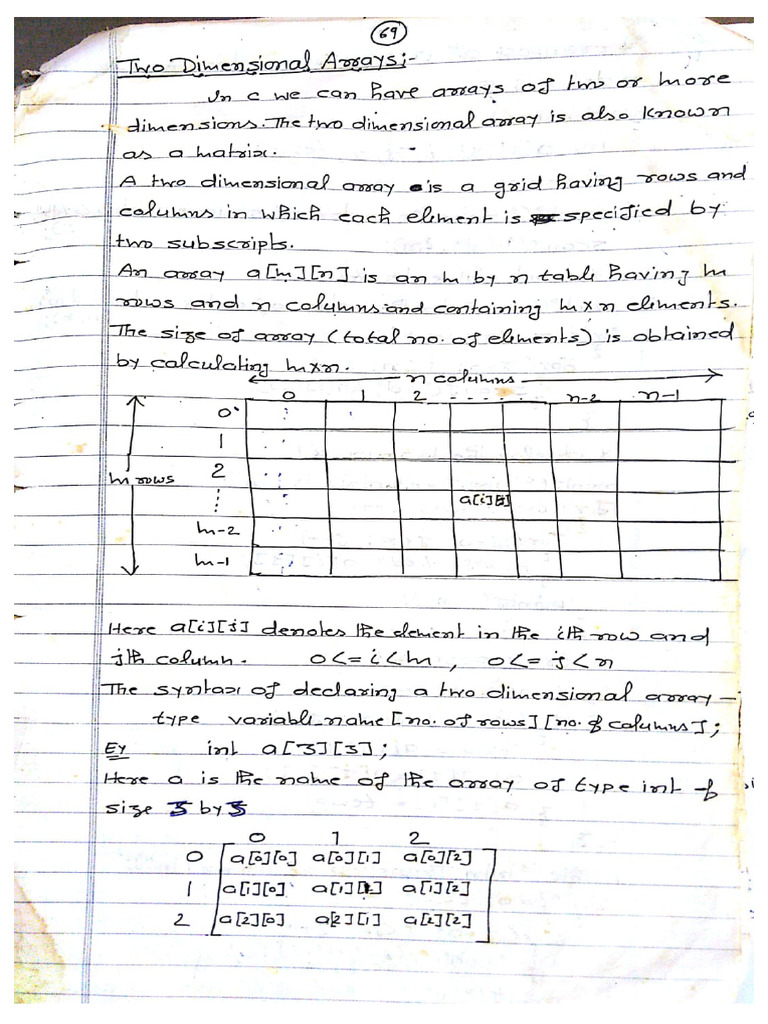 69
Two Dimensional Arrays:-
In c we can have arrays of two or more
dimensions. The two dimensional array is also known
as a matrix.
A two dimensional array is a grid having rows and
columns in which each element is specified by
two subscripts.
An array a[m][n] is an m by n table having m
rows and n columns and containing m×n elements.
The size of array (total no. of elements) is obtained
by calculating m×n.
n columns
0 1 2 ..... n-2 n-1
0
1
m rows 2
⋮ a[i][j]
m-2
m-1
Here a[i][j] denotes the element in the ith row and
jth column. 0<=i<m, 0<=j<n
The syntax of declaring a two dimensional array -
type variable_name[no. of rows][no. of columns];
Ex int a[3][3];
Here a is the name of the array of type int of
size by
0 1 2
0 a[0][0] a[0][1] a[0][2]
1 a[1][0] a[1][1] a[1][2]
2 a[2][0] a[2][1] a[2][2]